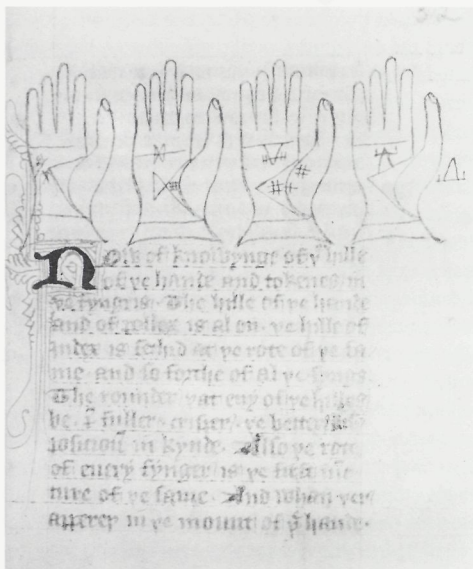 32
Nowe of knowynge of yͤ hille
of ye hande and tokenes in
ye fyngris. The hille of ye hande
and of pollex is al on. ye hille of
index is sethid at ye rote of ye sa
me. and so forthe of al ye
The rounder yat eny of ye hilles
be. fuller ye better
position in kynde. Also ye rote
of euery fynger is ye
ture of ye same. And whan yer
apperep in ye mount of yͤ hande.